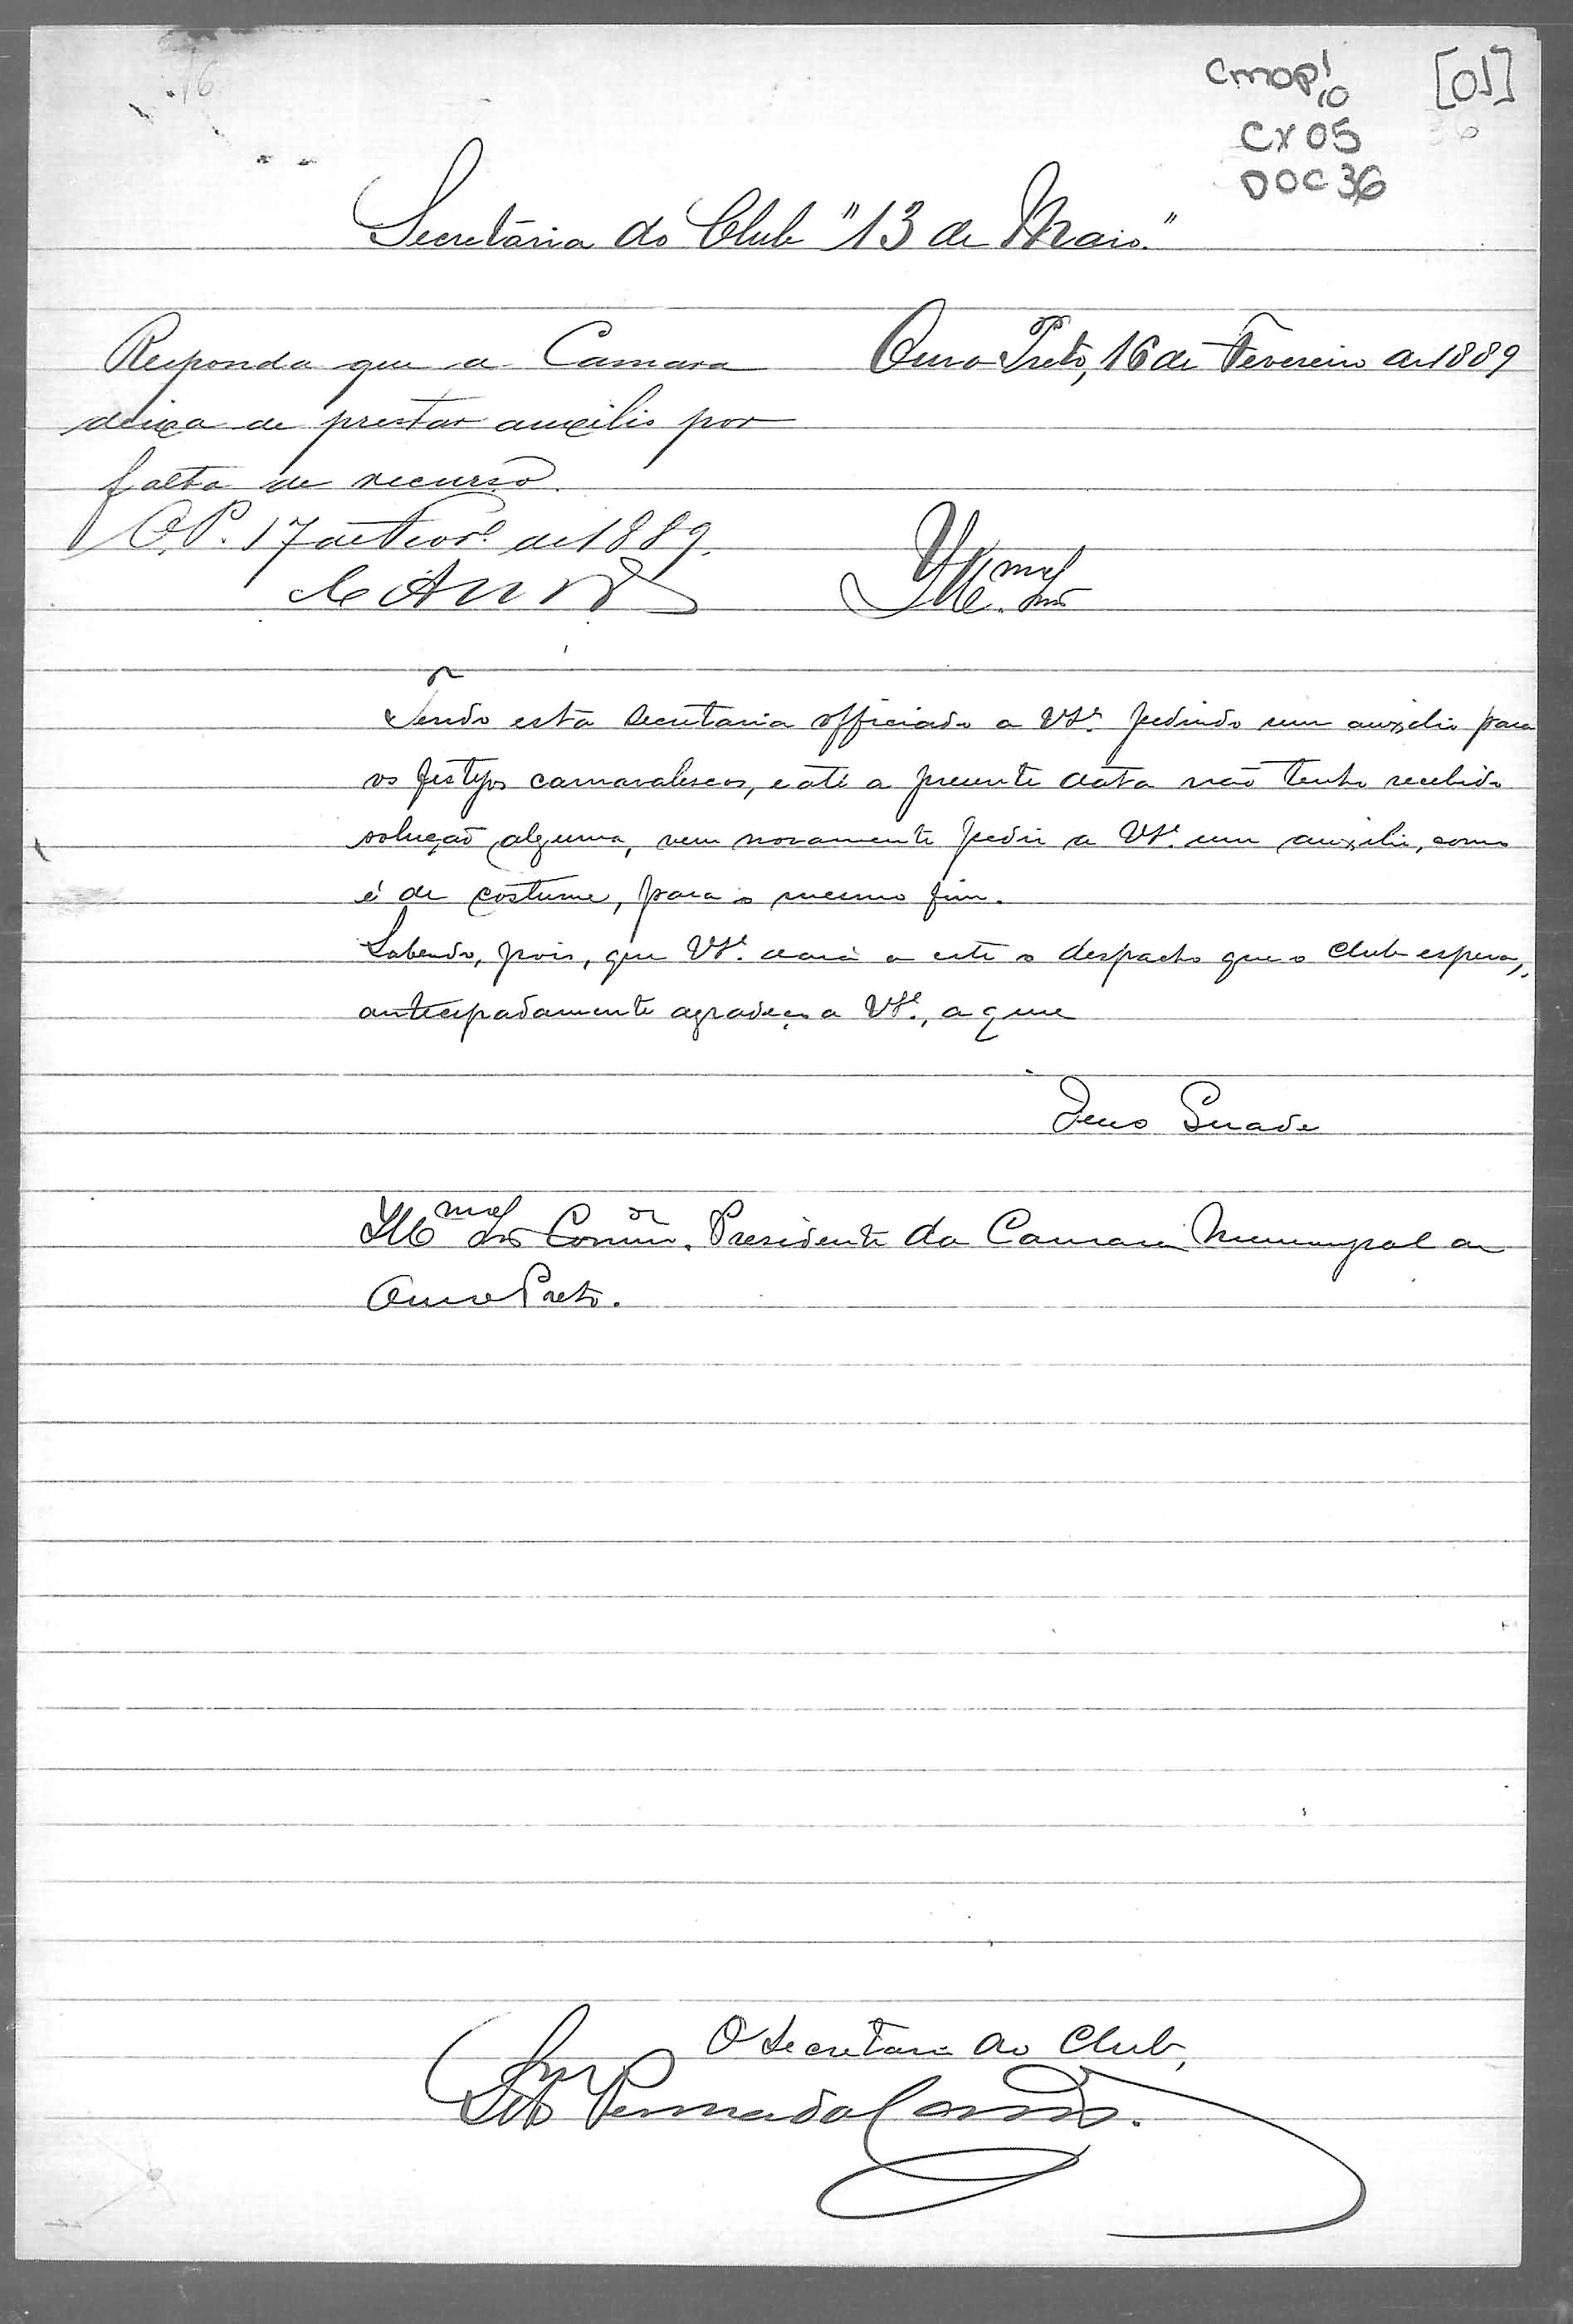 CMOP 1/10
[01]
CX 05
DOC 36
36
Secretaria do Club "13 de Maio."
Ouro Preto, 16 de Fevereiro de 1889
Responda que a Camara
deixa de prestar auxilio por
falta de recurso.
O. P. 17 de Fevr.º de 1889.
Ill.mo Snr
Tendo esta secretaria officiado a V.S.ª pedindo um auxilio para
os festejos carnavalescos, e até a presente data não tenho recebido
solução alguma, vem novamente pedir a V.S.ª um auxilio, como
é de costume, para o mesmo fim.
Sabendo, pois, que V.S.ª dará a este o despacho que o Club espera,
antecipadamente agradeço a V.S.ª, a quem
Deus Guarde
Ill.mo Snr Comm.or Presidente da Camara Municipal de
Ouro Preto.
O Secretario do Club,